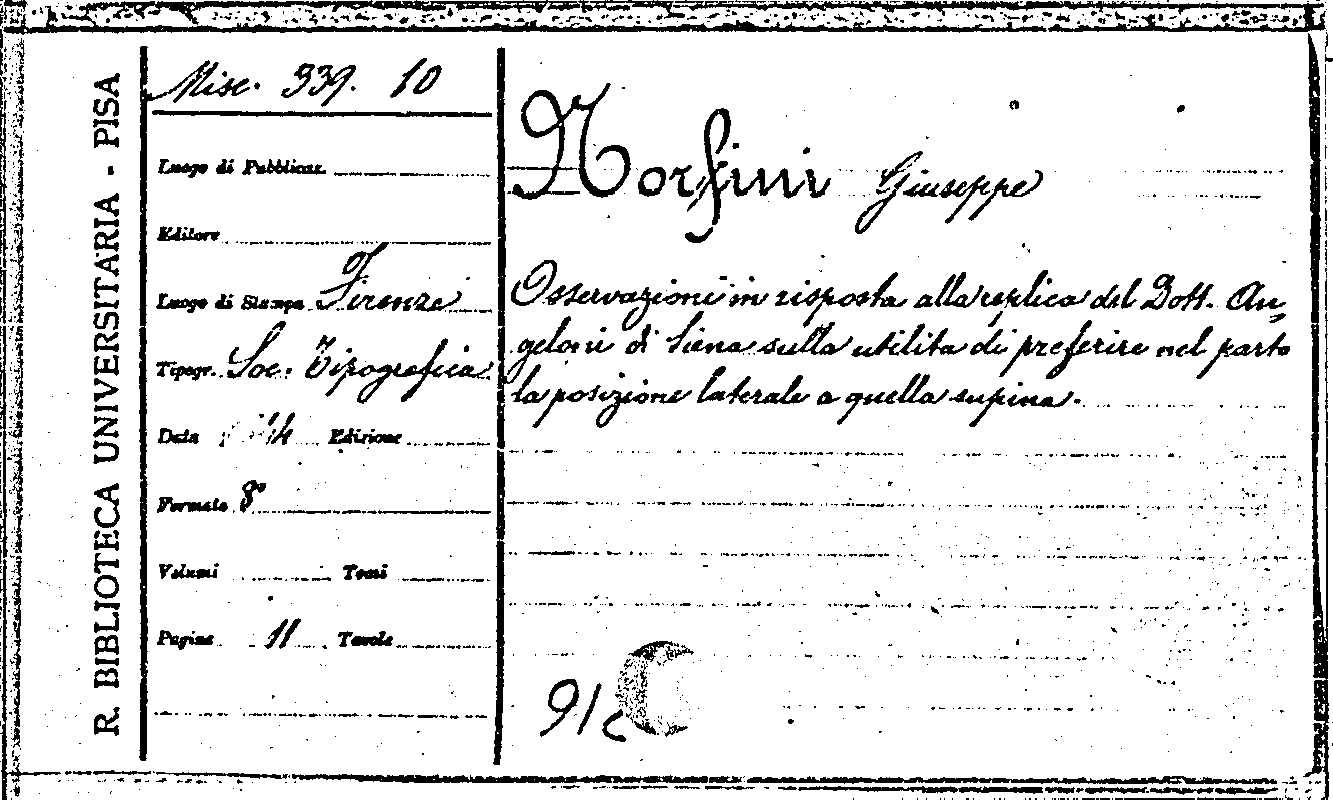 R. BIBLIOTECA UNIVERSITARIA - PISA
Misc. 339. 10
Luogo di Pubblicaz.
Editore
Luogo di Stampa Firenze
Tipogr. Soc. Tipografica
Data Edizione
Formato 8°
Volumi Tomi
Pagine 11 Tavole
Morfini Giuseppe
Osservazioni in risposta alla replica del Dott. An-
geloni di Siena sulla utilita di preferire nel parto
la posizione laterale a quella supina.